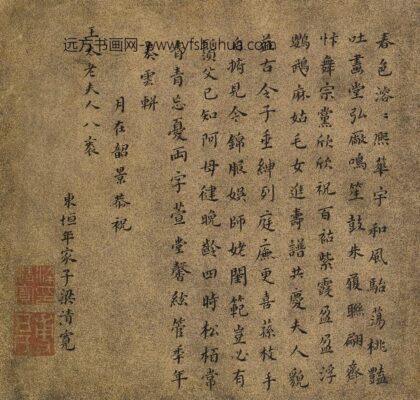 远方书画网- www.yfshuhua.com
春色溶〻熙華宇和風駘蕩桃豔
吐畫堂弘敞鳴笙鼓朱履聯翩齊
忭舞宗黨欣欣祝百祜紫霞盈盈浮
鸚鵡麻姑毛女進壽譜共慶夫人貌
益古令子垂紳列庭廡更喜蓀枝手
自携見令錦服娛師姥閨範豈必有
須父已知阿母健晚齡四時松栢常
青忘憂兩字萱堂馨絃管年年
奏雲軿
月在韶景恭祝
王太老夫人八袠
東垣年家子梁清寬